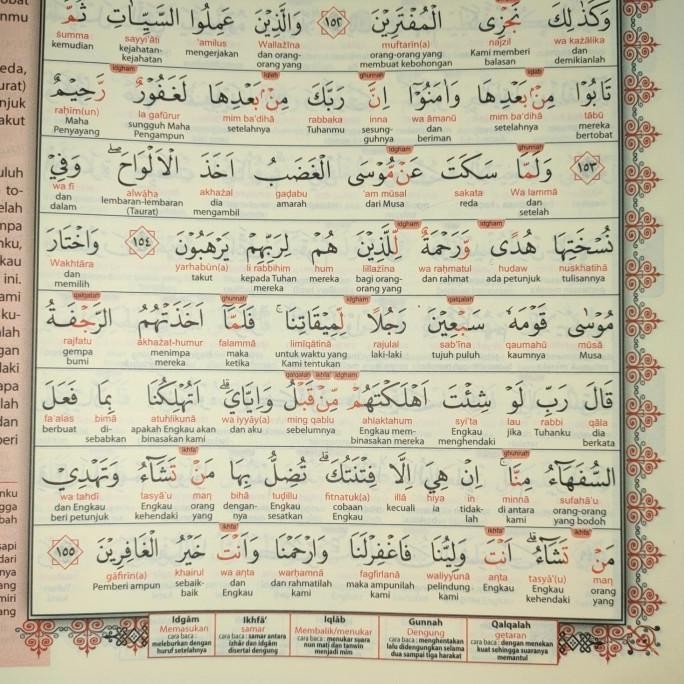 وَكَذٰلِكَ نَجْزِى الْمُفْتَرِيْنَ ١٥٢ وَالَّذِيْنَ عَمِلُوا السَّيِّاٰتِ ثُمَّ
wa każālika najzil muftarīn(a) Wallażīna 'amilus sayyi'āti ṡumma
dan demikianlah Kami memberi balasan orang-orang yang membuat kebohongan dan orang-orang yang mengerjakan kejahatan-kejahatan kemudian
تَابُوْا مِنْۢ بَعْدِهَا وَاٰمَنُوْٓا اِنَّ رَبَّكَ مِنْۢ بَعْدِهَا لَغَفُوْرٌ رَّحِيْمٌ
tābū mim ba'dihā wa āmanū inna rabbaka mim ba'dihā la gafūrur raḥīm(un)
mereka bertobat setelahnya dan beriman sesungguhnya Tuhanmu setelahnya sungguh Maha Pengampun Maha Penyayang
١٥٣ وَلَمَّا سَكَتَ عَنْ مُّوْسَى الْغَضَبُ اَخَذَ الْاَلْوَاحَۖ وَفِيْ
Wa lammā sakata 'am mūsal gaḍabu akhażal alwāḥa wa fī
dan setelah reda dari Musa amarah dia mengambil lembaran-lembaran (Taurat) dan dalam
نُسْخَتِهَا هُدًى وَّرَحْمَةٌ لِّلَّذِيْنَ هُمْ لِرَبِّهِمْ يَرْهَبُوْنَ ١٥٤ وَاخْتَارَ
nuskhatihā hudaw wa raḥmatul lillażīna hum li rabbihim yarhabūn(a) Wakhtāra
tulisannya ada petunjuk dan rahmat bagi orang-orang yang mereka kepada Tuhan mereka takut dan memilih
مُوْسٰى قَوْمَهٗ سَبْعِيْنَ رَجُلًا لِّمِيْقَاتِنَاۚ فَلَمَّآ اَخَذَتْهُمُ الرَّجْفَةُ
mūsā qaumahū sab'īna rajulal limīqātinā falammā akhażat-humur rajfatu
Musa kaumnya tujuh puluh laki-laki untuk waktu yang Kami tentukan maka ketika menimpa mereka gempa bumi
قَالَ رَبِّ لَوْ شِئْتَ اَهْلَكْتَهُمْ مِّنْ قَبْلُ وَاِيَّايَۗ اَتُهْلِكُنَا بِمَا فَعَلَ
qāla rabbi lau syi'ta ahlaktahum ming qablu wa iyyāy(a) atuhlikunā bimā fa'alas
dia berkata Tuhanku jika Engkau menghendaki Engkau membinasakan mereka sebelumnya dan aku apakah Engkau akan binasakan kami disebabkan berbuat
السُّفَهَاۤءُ مِنَّاۚ اِنْ هِيَ اِلَّا فِتْنَتُكَۗ تُضِلُّ بِهَا مَنْ تَشَاۤءُ وَتَهْدِيْ
sufahā'u minnā in hiya illā fitnatuk(a) tuḍillu bihā man tasyā'u wa tahdī
orang-orang yang bodoh di antara kami tidaklah ia kecuali cobaan Engkau Engkau sesatkan dengannya orang yang Engkau kehendaki dan Engkau beri petunjuk
مَنْ تَشَاۤءُۗ اَنْتَ وَلِيُّنَا فَاغْفِرْ لَنَا وَارْحَمْنَا وَاَنْتَ خَيْرُ الْغَافِرِيْنَ ١٥٥
man tasyā'(u) anta waliyyunā fagfirlanā warḥamnā wa anta khairul gāfirīn(a)
orang yang Engkau kehendaki Engkau pelindung kami maka ampunilah kami dan rahmatilah kami dan Engkau sebaik-baik Pemberi ampun
Idgām Ikhfā' Iqlāb Gunnah Qalqalah
Memasukan samar Membalik/menukar Dengung getaran
cara baca : meleburkan dengan huruf setelahnya
cara baca : samar antara iẓhār dan idgām disertai dengung
cara baca : menukar suara nun mati dan tanwin menjadi mim
cara baca : menghentakan lalu didengungkan selama dua sampai tiga harakat
cara baca : dengan menekan kuat sehingga suaranya memantul